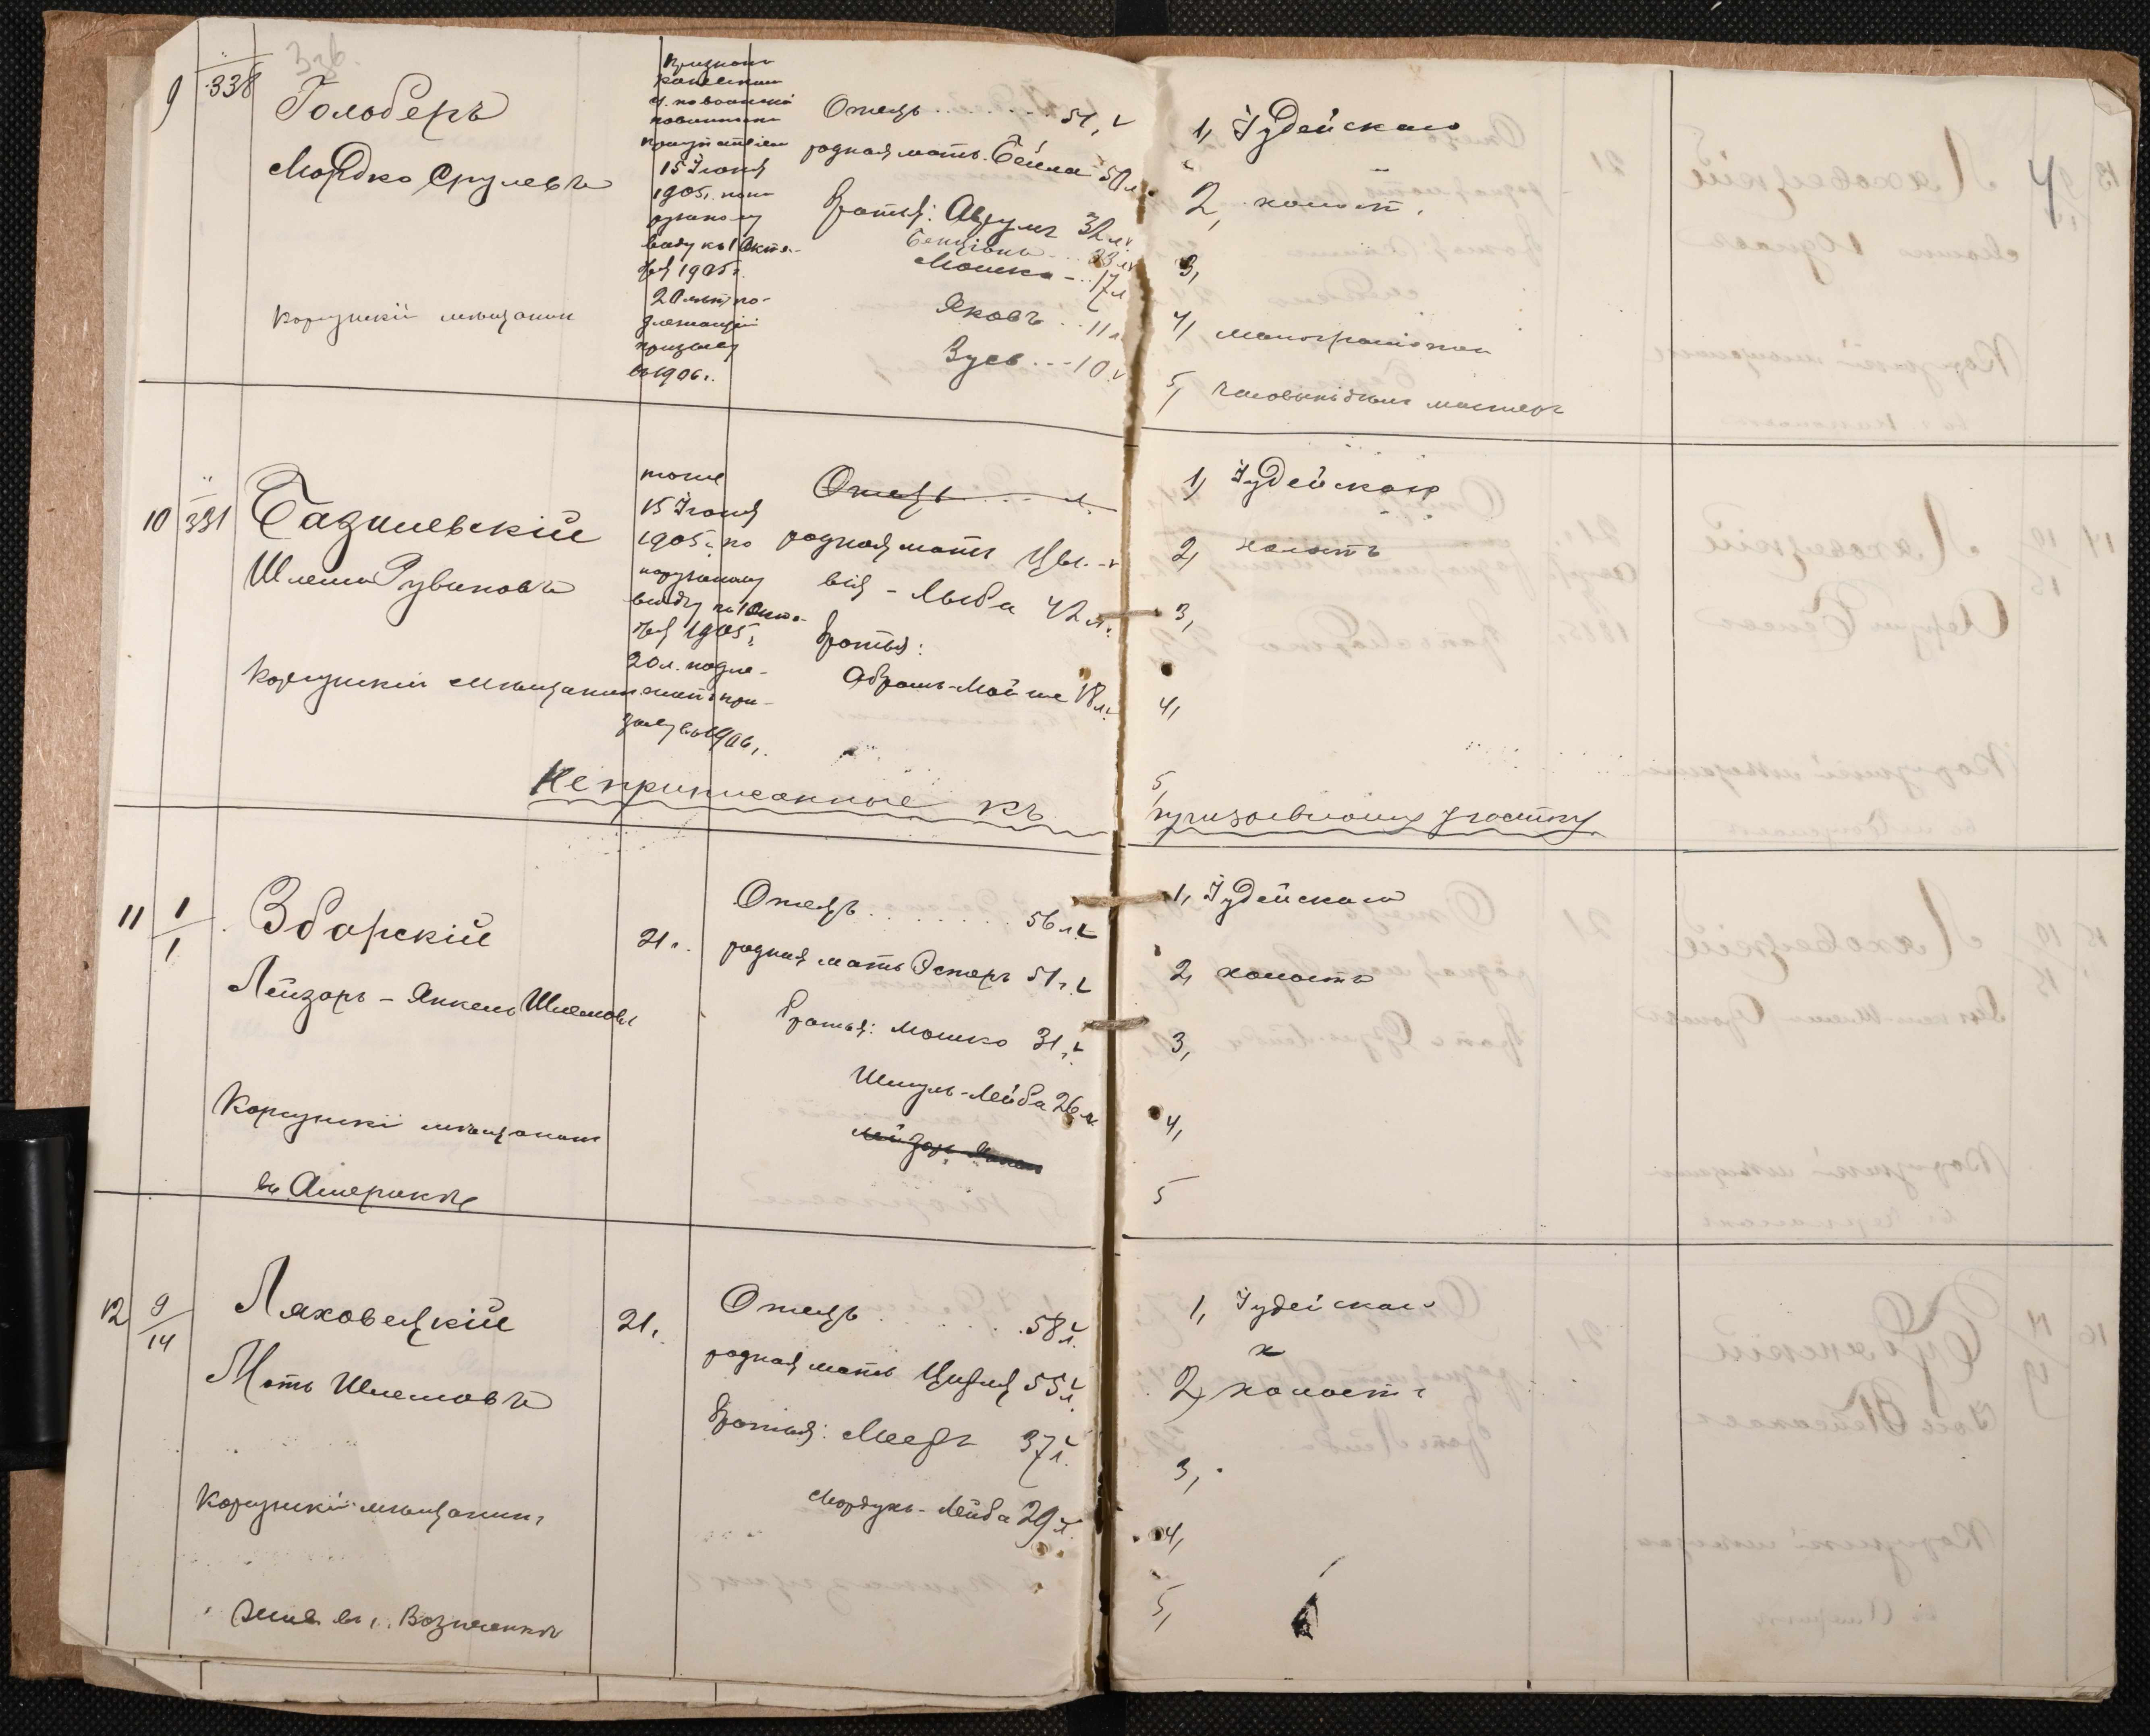 9
338
336.
Голоберъ
Мордко Срулевъ
Корсунскій мѣщанинъ
Признанъ
Каневскимъ
у. по воинской
повинности
присутствіем
15 Іюня
1905 г. по на
ружному
виду къ 1 Октя-
бря 1905 г.
20 лѣтъ по-
длежащій
призыву
въ 1906 г.
Отецъ . . . . . . 51 г
родная мать Бейла 50 л.
Братья: Аврумъ 32 л
Бенціонъ 23 л
Мошко - 17 л
Яковъ . . 11 л
Зусь . . . 10
1, Іудейскаго
2, холостъ
3,
4, малограмотный
5, часовыхъ дѣлъ мастеръ
10
331
Базилевскій
Шлема Рувиновъ
Корсунскій мѣщанинъ
тоже
15 Іюня
1905 г. по
наружному
виду къ 1 Октя-
бря 1905 г.
20 л. подле-
житъ при-
зыву въ 1906 г.
Отецъ . . . л.
родная мать Цы-
вія - Лыба 42 л.
Братья:
Абрамъ-Мойше 18 л.
1, Іудейскаго
2, холостъ
3,
4,
5,
Неприписанные къ призывному участку
11
1/1
Збарскій
Лейзоръ - Янкель Шлемовъ
Корсунскій мѣщанинъ
въ Америкѣ
21 г.
Отецъ . . . . . . 56 л.
родная мать Эстеръ 51 г.
Братья: Мошко 31 г.
Шмуль-Лейба 26 л
Лейзоръ Янкель
1, Іудейскаго
2, холостъ
3,
4,
5
12
9/14
Ляховецкій
Моть Шлемовъ
Корсунскій мѣщанинъ
жив. въ г. Вознесенскѣ
21 г.
Отецъ . . . . . . 58 л.
родная мать Ципря 55 л.
Братья: Мееръ 37 л.
Мордухъ - Лейба 29 л.
1, Іудейскаго
х
2, холостъ
3,
4,
5,
4